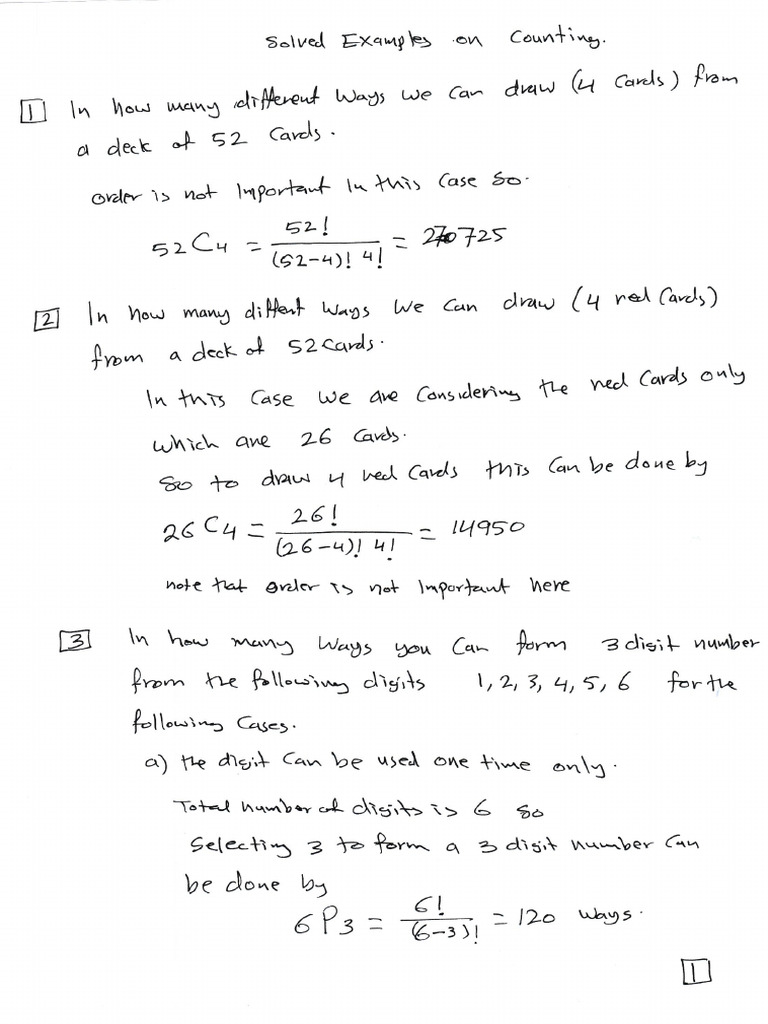 Solved Examples on Counting.
1 In how many different ways we can draw (4 cards) from
a deck of 52 cards.
order is not important in this case so.
52C4 = 52! / (52-4)! 4! = 270725
2 In how many diffent ways we can draw (4 red cards)
from a deck of 52 cards.
In this case we are considering the red cards only
which are 26 cards.
so to draw 4 red cards this can be done by
26C4 = 26! / (26-4)! 4! = 14950
note that order is not important here
3 In how many ways you can form 3 digit number
from the following digits 1, 2, 3, 4, 5, 6 for the
following cases.
a) the digit can be used one time only.
Total number of digits is 6 so
selecting 3 to form a 3 digit number can
be done by
6P3 = 6! / (6-3)! = 120 ways.
1